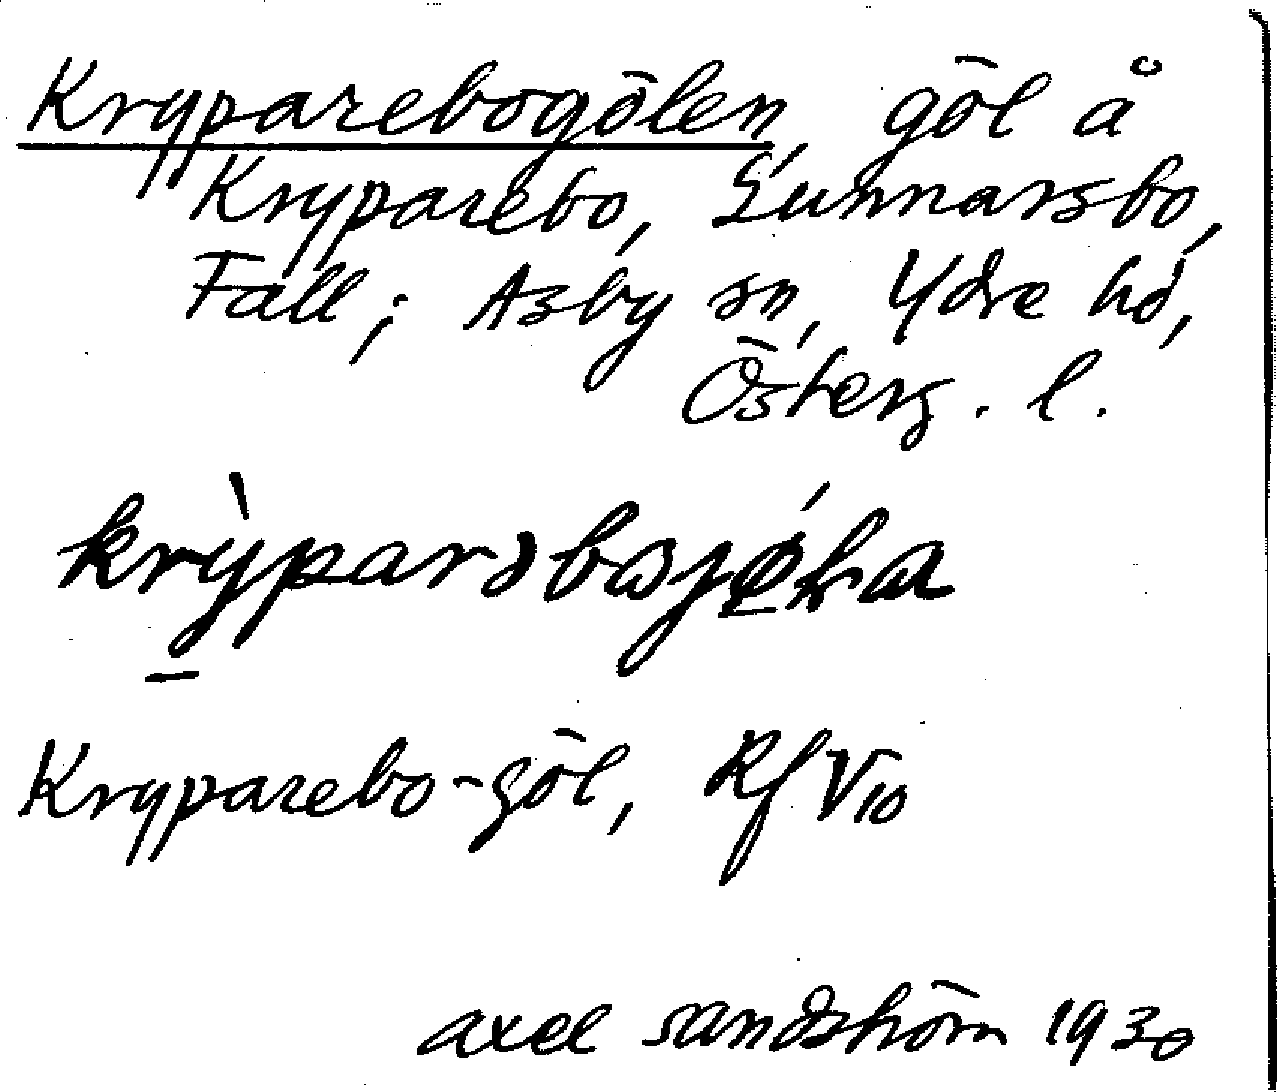 Kryparebogölen, göl å
Kryparebo, Gunnarsbo,
Fall; Asby sn, Ydre hd,
Österg. l.
Kryparebo-göl, Rf V10
axel sandström 1930